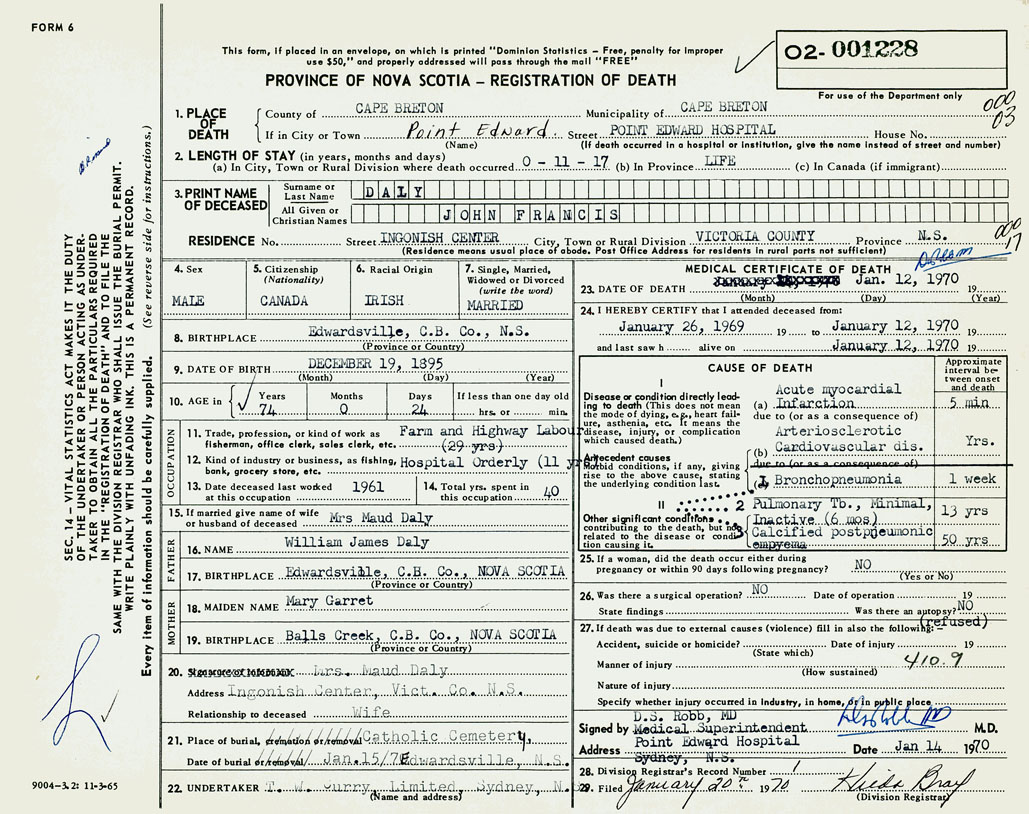 FORM 6
This form, if placed in an envelope, on which is printed "Dominion Statistics – Free, penalty for improper
use $50," and properly addressed will pass through the mail "FREE"
PROVINCE OF NOVA SCOTIA – REGISTRATION OF DEATH
O2- 001228
For use of the Department only
000
03
1. PLACE OF DEATH
County of CAPE BRETON Municipality of CAPE BRETON
If in City or Town Point Edward Street POINT EDWARD HOSPITAL House No.
(Name) (If death occurred in a hospital or institution, give the name instead of street and number)
2. LENGTH OF STAY (in years, months and days)
(a) In City, Town or Rural Division where death occurred 0 - 11 - 17 (b) In Province LIFE (c) In Canada (if immigrant)
3. PRINT NAME OF DECEASED
Surname or Last Name DALY
All Given or Christian Names JOHN FRANCIS
RESIDENCE No. Street INGONISH CENTER City, Town or Rural Division VICTORIA COUNTY Province N.S.
000
17
(Residence means usual place of abode. Post Office Address for residents in rural parts not sufficient)
4. Sex
MALE
5. Citizenship
(Nationality)
CANADA
6. Racial Origin
IRISH
7. Single, Married,
Widowed or Divorced
(write the word)
MARRIED
8. BIRTHPLACE Edwardsville, C.B. Co., N.S.
(Province or Country)
9. DATE OF BIRTH DECEMBER 19, 1895
(Month) (Day) (Year)
10. AGE in
Years Months Days If less than one day old
74 0 24 hrs. or min.
OCCUPATION
11. Trade, profession, or kind of work as
fisherman, office clerk, sales clerk, etc. Farm and Highway Labour
(29 yrs)
12. Kind of industry or business, as fishing,
bank, grocery store, etc. Hospital Orderly (11 yr
13. Date deceased last worked
at this occupation 1961
14. Total yrs. spent in
this occupation 40
15. If married give name of wife
or husband of deceased Mrs Maud Daly
FATHER
16. NAME William James Daly
17. BIRTHPLACE Edwardsville, C.B. Co., NOVA SCOTIA
(Province or Country)
MOTHER
18. MAIDEN NAME Mary Garret
19. BIRTHPLACE Balls Creek, C.B. Co., NOVA SCOTIA
(Province or Country)
20. Signature of informant Mrs. Maud Daly
Address Ingonish Center, Vict. Co. N.S.
Relationship to deceased Wife
21. Place of burial, cremation or removal Catholic Cemetery,
Date of burial or removal Jan.15/70 Edwardsville, N.S.
22. UNDERTAKER T. W. Curry, Limited, Sydney, N.S.
(Name and address)
MEDICAL CERTIFICATE OF DEATH
23. DATE OF DEATH Jan. 12, 1970 19
(Month) (Day) (Year)
24. I HEREBY CERTIFY that I attended deceased from:
January 26, 1969 19 to January 12, 1970 19
and last saw h alive on January 12, 1970 19
CAUSE OF DEATH
Approximate
interval be-
tween onset
and death
I
Disease or condition directly lead-
ing to death (This does not mean
the mode of dying, e.g., heart fail-
ure, asthenia, etc. It means the
disease, injury, or complication
which caused death.)
Acute myocardial
(a) Infarction 5 min
due to (or as a consequence of)
Arteriosclerotic
Cardiovascular dis. Yrs.
(b)
due to (or as a consequence of)
Antecedent causes
Morbid conditions, if any, giving
rise to the above cause, stating
the underlying condition last.
(c) 1 Bronchopneumonia 1 week
II
Other significant conditions
contributing to the death, but not
related to the disease or condi-
tion causing it.
2 Pulmonary Tb., Minimal,
Inactive (6 mos) 13 yrs
3 Calcified postpneumonic
empyema 50 yrs
25. If a woman, did the death occur either during
pregnancy or within 90 days following pregnancy? NO
(Yes or No)
26. Was there a surgical operation? NO Date of operation 19
State findings Was there an autopsy? NO
(refused)
27. If death was due to external causes (violence) fill in also the following:–
Accident, suicide or homicide? Date of injury 19
(State which)
Manner of injury 410.9
(How sustained)
Nature of injury
Specify whether injury occurred in Industry, in home, or in public place
D.S. Robb, MD
Signed by Medical Superintendent M.D.
Address Point Edward Hospital Date Jan 14 1970
Sydney, N.S.
28. Division Registrar's Record Number 1
29. Filed January 20th 1970 Hilda Bray
(Division Registrar)
SEC. 14 – VITAL STATISTICS ACT MAKES IT THE DUTY
OF THE UNDERTAKER OR PERSON ACTING AS UNDER-
TAKER TO OBTAIN ALL THE PARTICULARS REQUIRED
IN THE "REGISTRATION OF DEATH" AND TO FILE THE
SAME WITH THE DIVISION REGISTRAR WHO SHALL ISSUE THE BURIAL PERMIT.
WRITE PLAINLY WITH UNFADING INK. THIS IS A PERMANENT RECORD.
Every item of information should be carefully supplied. (See reverse side for instructions.)
9004-3.2: 11-3-65